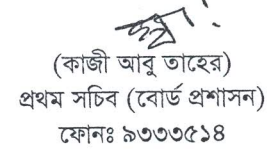 (কাজী আবু তাহের)
প্রথম সচিব (বোর্ড প্রশাসন)
ফোনঃ ৯৩৩৩৫১৪